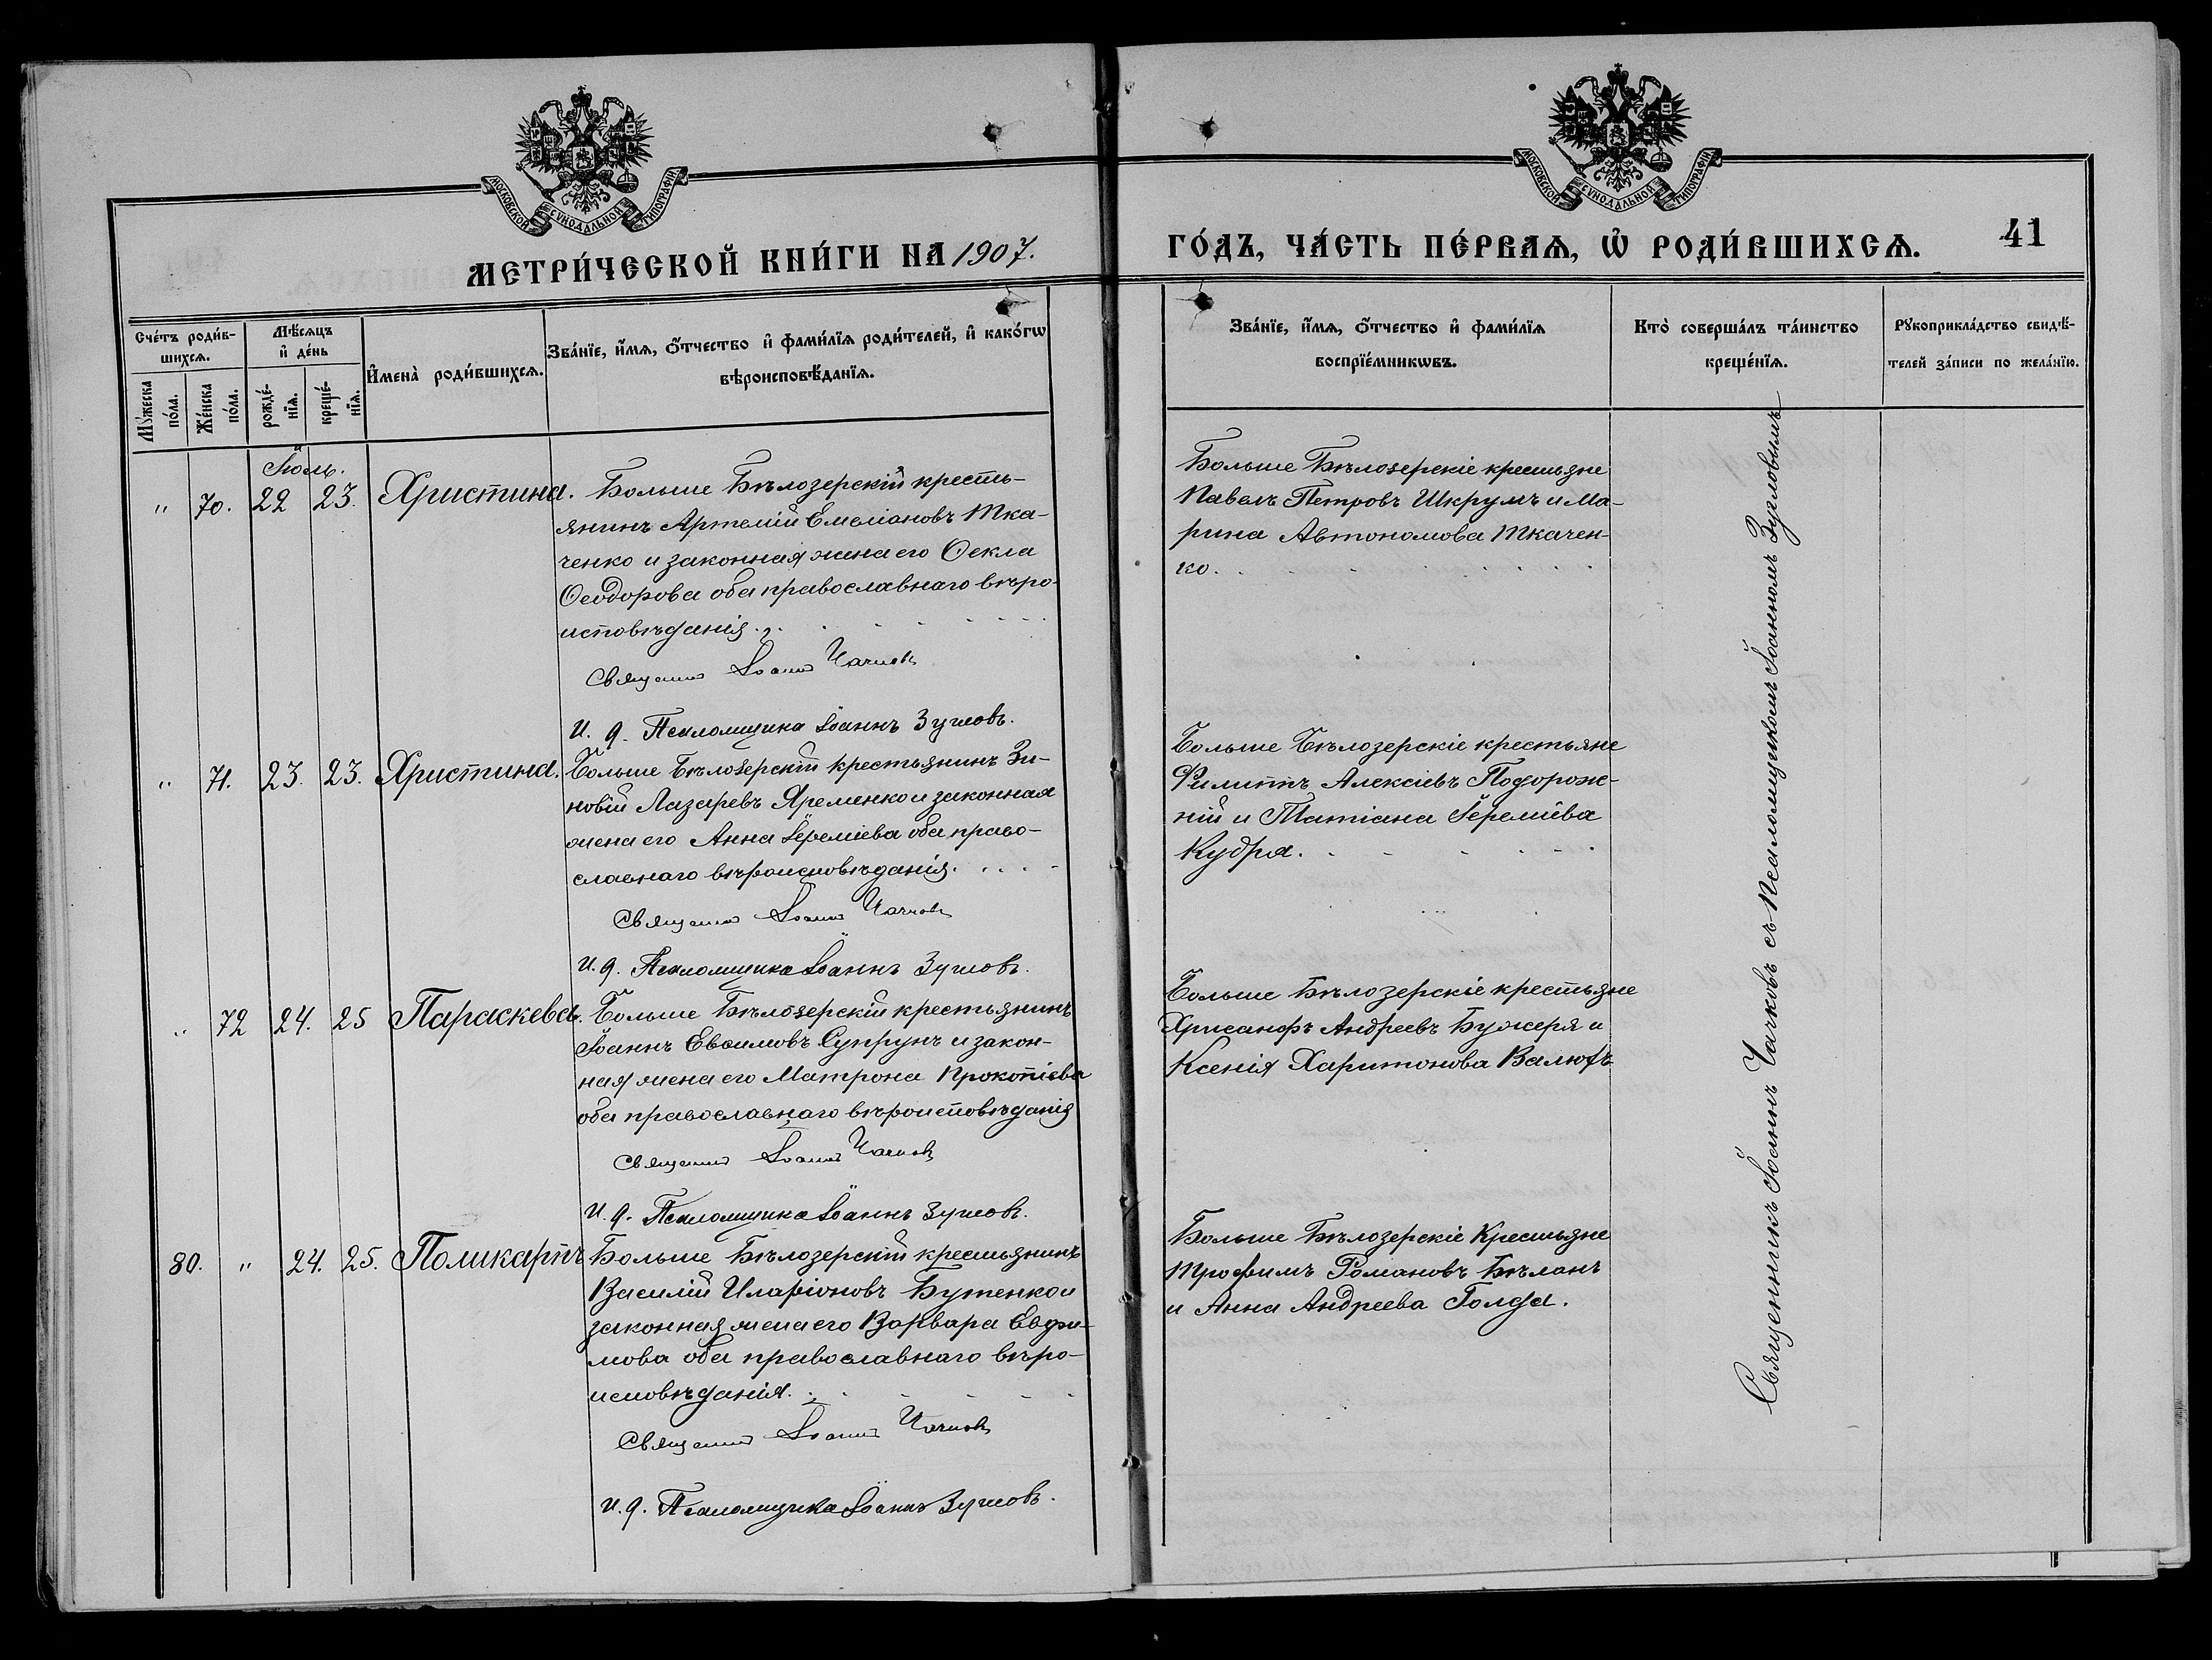 МОСКОВСКОЙ СѴНОДАЛЬНОЙ ТИПОГРАФІИ
МОСКОВСКОЙ СѴНОДАЛЬНОЙ ТИПОГРАФІИ
МЕТРИ́ЧЕСКОЙ КНИ́ГИ НА 1907.
ГО́ДЪ, ЧА́СТЬ ПЕ́РВАѦ, Ѡ҆ РОДИ́ВШИХСѦ.
41
Сче́тъ роди́в-
шихсѧ.
Мꙋ́жеска
по́ла.
Же́нска
по́ла.
Мѣ́сѧцъ
и҆ де́нь
рожде́-
нїѧ.
креще́-
нїѧ.
И҆мена̀ роди́вшихсѧ.
Зва́нїе, и҆́мѧ, ѻ҆́тчество и҆ фами́лїѧ роди́телей, и҆ како́гѡ
вѣроисповѣ́данїѧ.
Зва́нїе, и҆́мѧ, ѻ҆́тчество и҆ фами́лїѧ
воспрїе́мникѡвъ.
Кто̀ соверша́лъ та́инство
креще́нїѧ.
Рꙋкоприкла́дство свидѣ́-
телей за́писи по жела́нїю.
Іюль.
" 70. 22 23. Христина.
Больше Бѣлозерскій кресть-
янинъ Артемій Емеліановъ Тка-
ченко и законная жена его Ѳекла
Ѳеодорова оба православнаго вѣро-
исповѣданія.
Священникъ Іоаннъ Чачковъ
И. д. Псаломщика Іоаннъ Зугловъ.
Больше Бѣлозерскіе крестьяне
Павелъ Петровъ Шкрумъ и Ма-
рина Автономова Ткачен-
ко.
" 71. 23. 23. Христина.
Больше Бѣлозерскій крестьянинъ Зи-
новій Лазаревъ Яременко и законная
жена его Анна Іереміева оба право-
славнаго вѣроисповѣданія.
Священникъ Іоаннъ Чачковъ
И. д. Псаломщика Іоаннъ Зугловъ.
Больше Бѣлозерскіе крестьяне
Филиппъ Алексіевъ Подорож-
ній и Татіана Іереміева
Кудря.
" 72 24. 25 Параскева.
Больше Бѣлозерскій крестьянинъ
Іоаннъ Евсимовъ Супрунъ и закон-
ная жена его Матрона Прокопіева
оба православнаго вѣроисповѣданія
Священникъ Іоаннъ Чачковъ
И. д. Псаломщика Іоаннъ Зугловъ.
Больше Бѣлозерскіе крестьяне
Хрисанфъ Андреевъ Бужеря и
Ксенія Харитонова Валюхъ
80. " 24. 25. Поликарпъ
Больше Бѣлозерскій крестьянинъ
Василій Иларіоновъ Бутенко и
законная жена его Варвара Евфи-
мова оба православнаго вѣро-
исповѣданія.
Священникъ Іоаннъ Чачковъ
И. д. Псаломщика Іоаннъ Зугловъ.
Больше Бѣлозерскіе Крестьяне
Трофимъ Романовъ Бѣланъ
и Анна Андреева Голда.
Священникъ Іоаннъ Чачковъ съ Псаломщикомъ Іоанномъ Зугловымъ